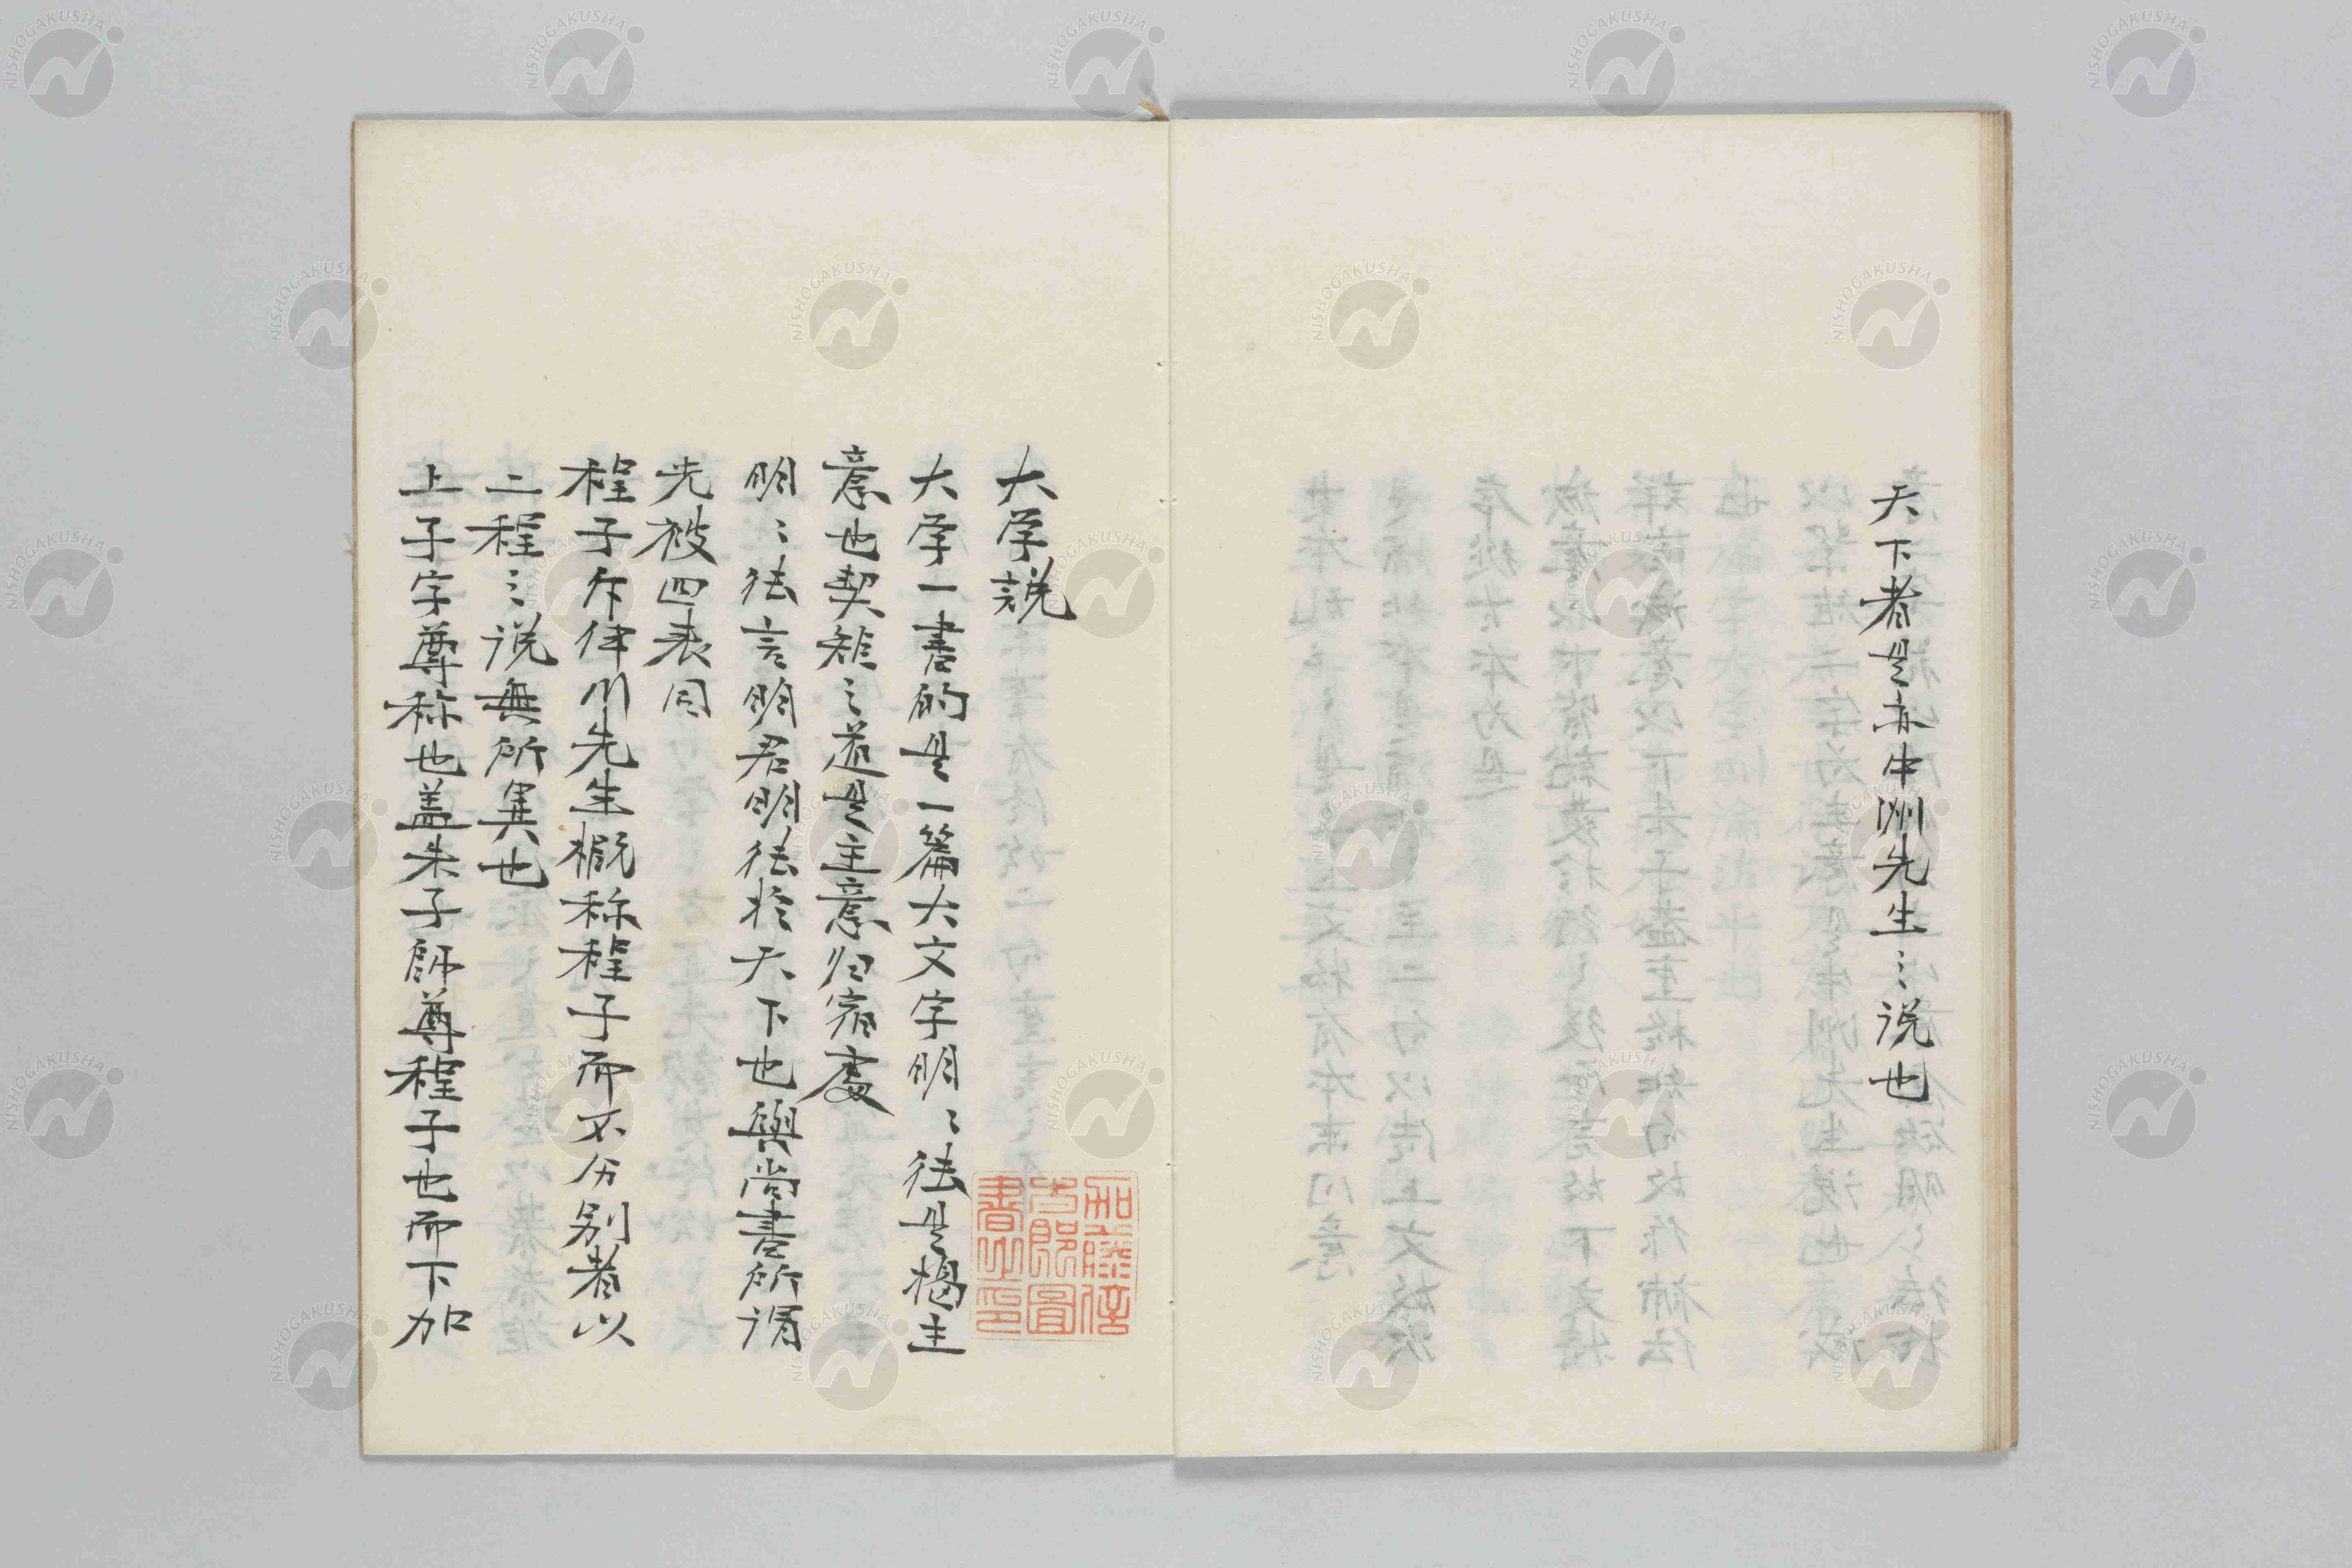 天下者是亦中洲先生〻説也
大学説
大学一書的是一篇大文字明〻徳是掲主
意也契矩之道是主意归宿處
明〻徳言明君明徳於天下也與尚書所谓
光被四表同
程子斥伊川先生概称程子而不分别者以
二程〻説無所異也
上子字尊称也盖朱子師尊程子也而下加
加藤復
古郎圖
書之印
NISHOGAKUSHA